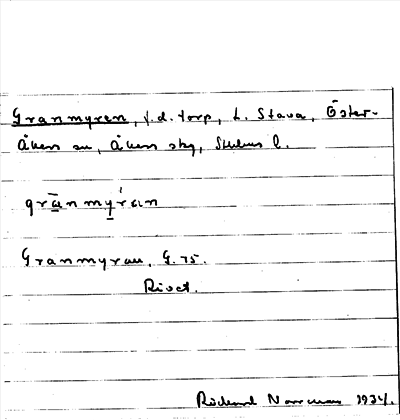 Granmyren, f.d. torp, t. Stava, Öster-
Åkers sn, Åkers skg, Sthlms l.
grānmy̱ŕan
Granmyran, G. 75.
Rivet.
Rickard Norrman 1934.